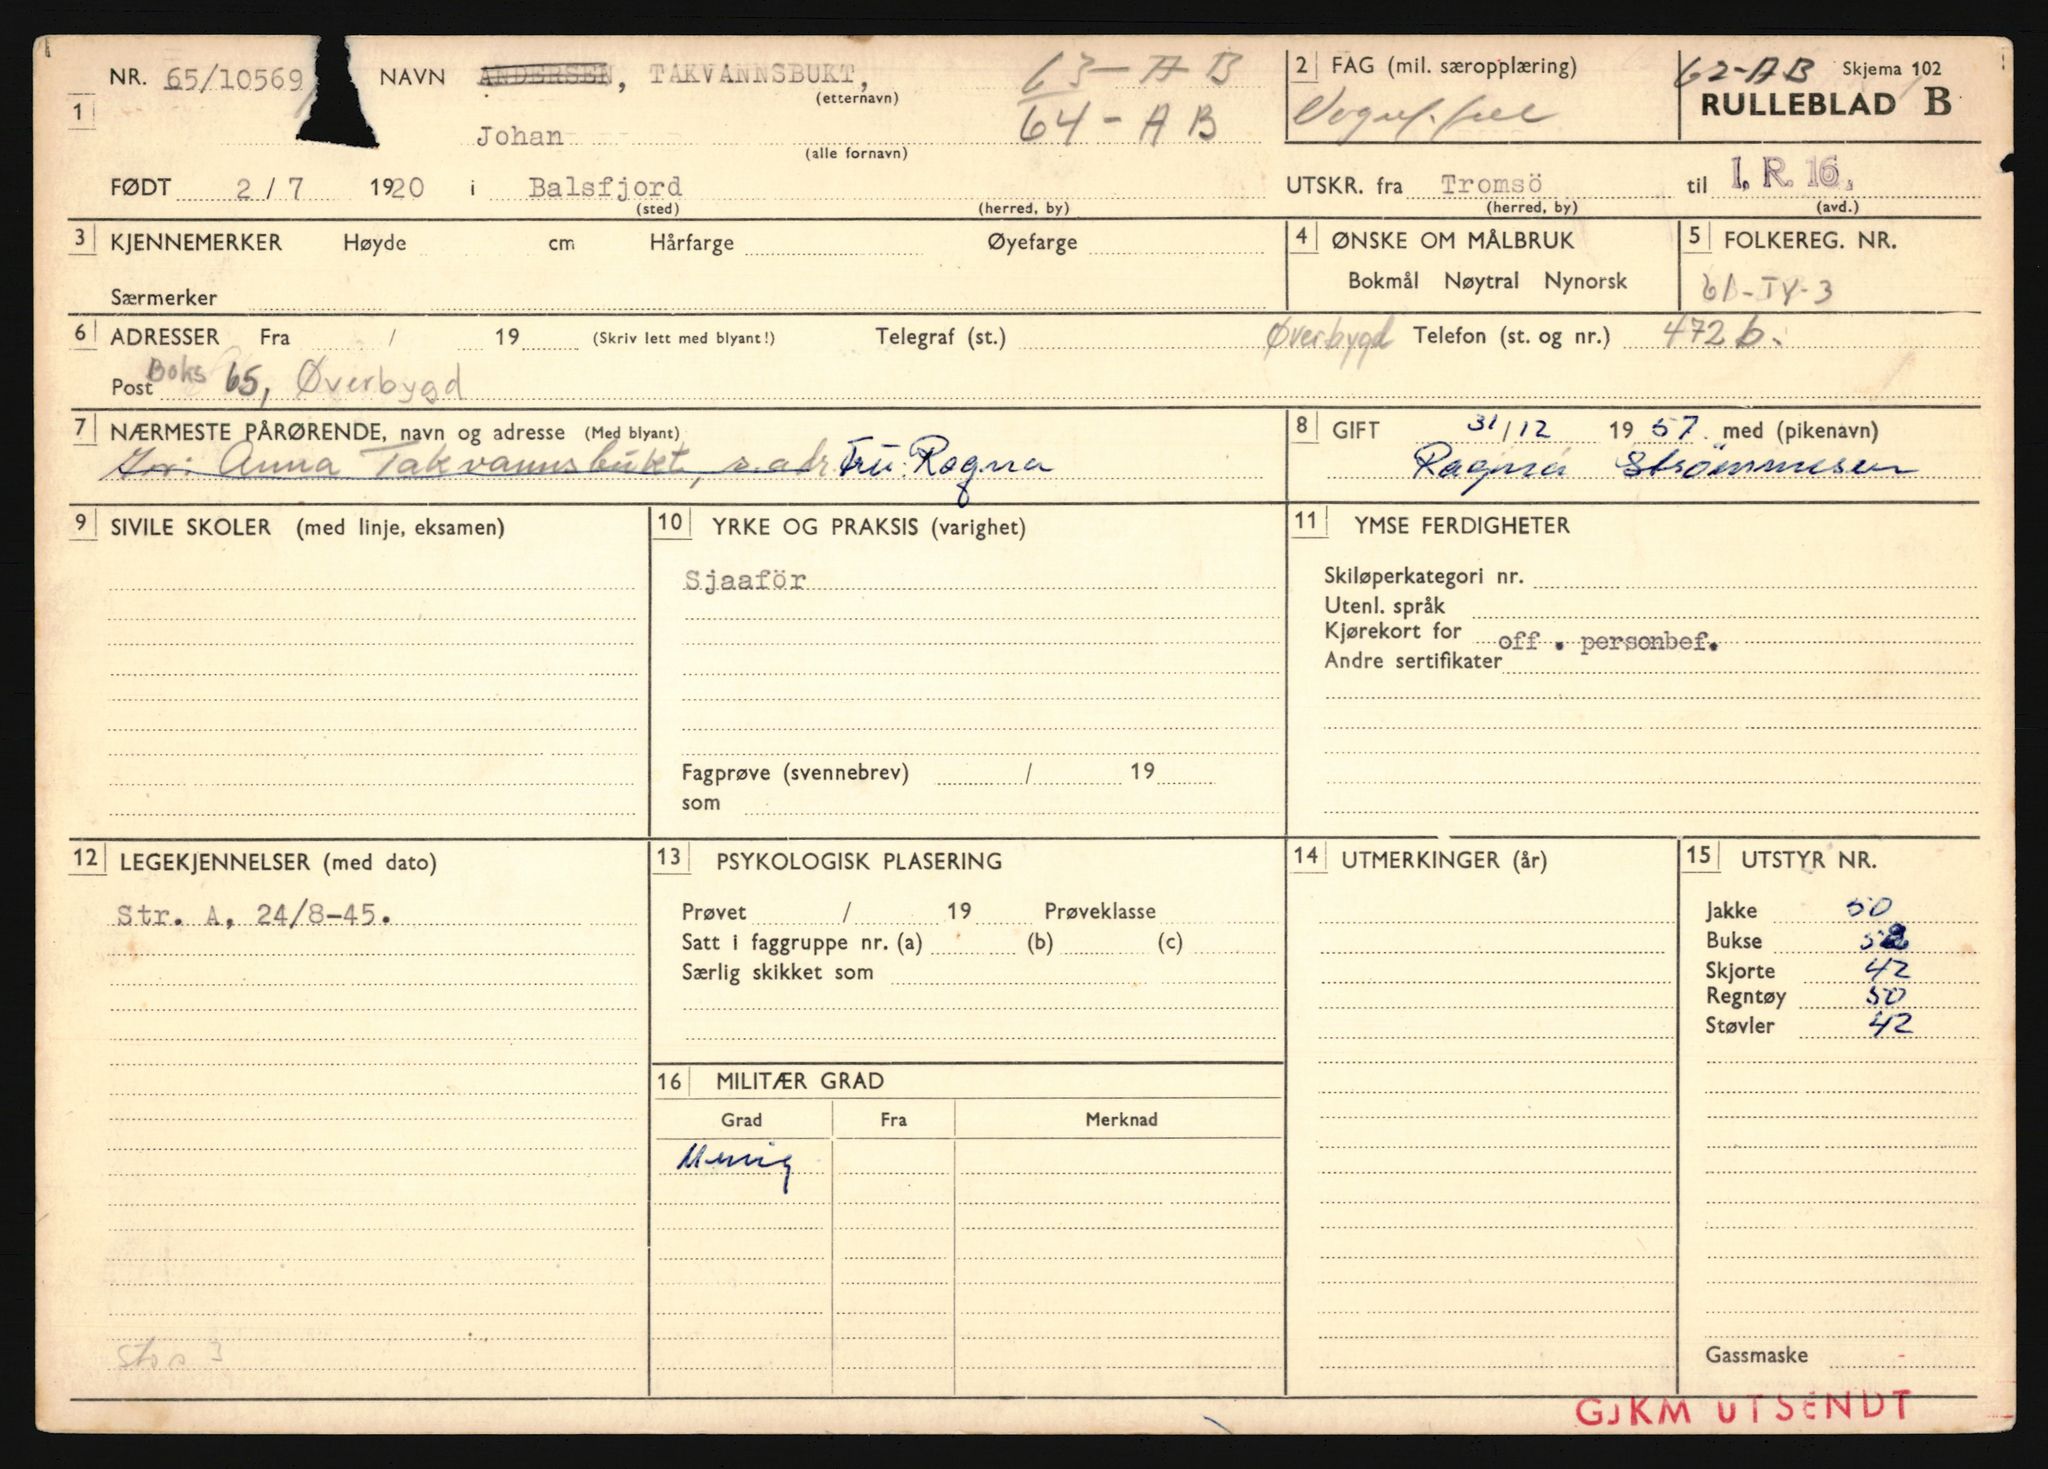 NR. 65/10569 NAVN ANDERSEN, TAKVANNSBUKT, 63-AB
(etternavn)
1 Johan 64-AB
(alle fornavn)
FØDT 2/7 1920 i Balsfjord
(sted) (herred, by)
2 FAG (mil. særopplæring)
62-AB Skjema 102
RULLEBLAD B
UTSKR. fra Tromsö til I.R.16.
(herred, by) (avd.)
3 KJENNEMERKER Høyde cm Hårfarge Øyefarge
Særmerker
4 ØNSKE OM MÅLBRUK
Bokmål Nøytral Nynorsk
5 FOLKEREG. NR.
6 ADRESSER Fra / 19 (Skriv lett med blyant!) Telegraf (st.) Øverbygd Telefon (st. og nr.) 472 b.
Post Boks 65, Øverbygd
7 NÆRMESTE PÅRØRENDE, navn og adresse (Med blyant)
Anna Takvannsbukt, s.adr. Fru: Ragna
8 GIFT 31/12 1957 med (pikenavn)
Ragna Strömmesen
9 SIVILE SKOLER (med linje, eksamen)
10 YRKE OG PRAKSIS (varighet)
Sjaaför
Fagprøve (svennebrev) / 19
som
11 YMSE FERDIGHETER
Skiløperkategori nr.
Utenl. språk
Kjørekort for off. personbef.
Andre sertifikater
12 LEGEKJENNELSER (med dato)
Str. A, 24/8-45.
13 PSYKOLOGISK PLASERING
Prøvet / 19 Prøveklasse
Satt i faggruppe nr. (a) (b) (c)
Særlig skikket som
14 UTMERKINGER (år)
15 UTSTYR NR.
Jakke 50
Bukse
Skjorte 42
Regntøy 50
Støvler 42
16 MILITÆR GRAD
Grad Fra Merknad
Menig
Gassmaske
GJKM UTSENDT